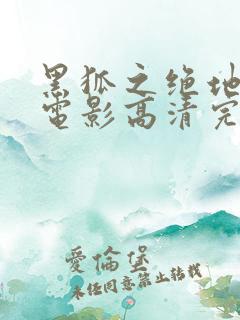 黑狐之绝地
電影高清完
愛倫堡
未经同意禁止转载